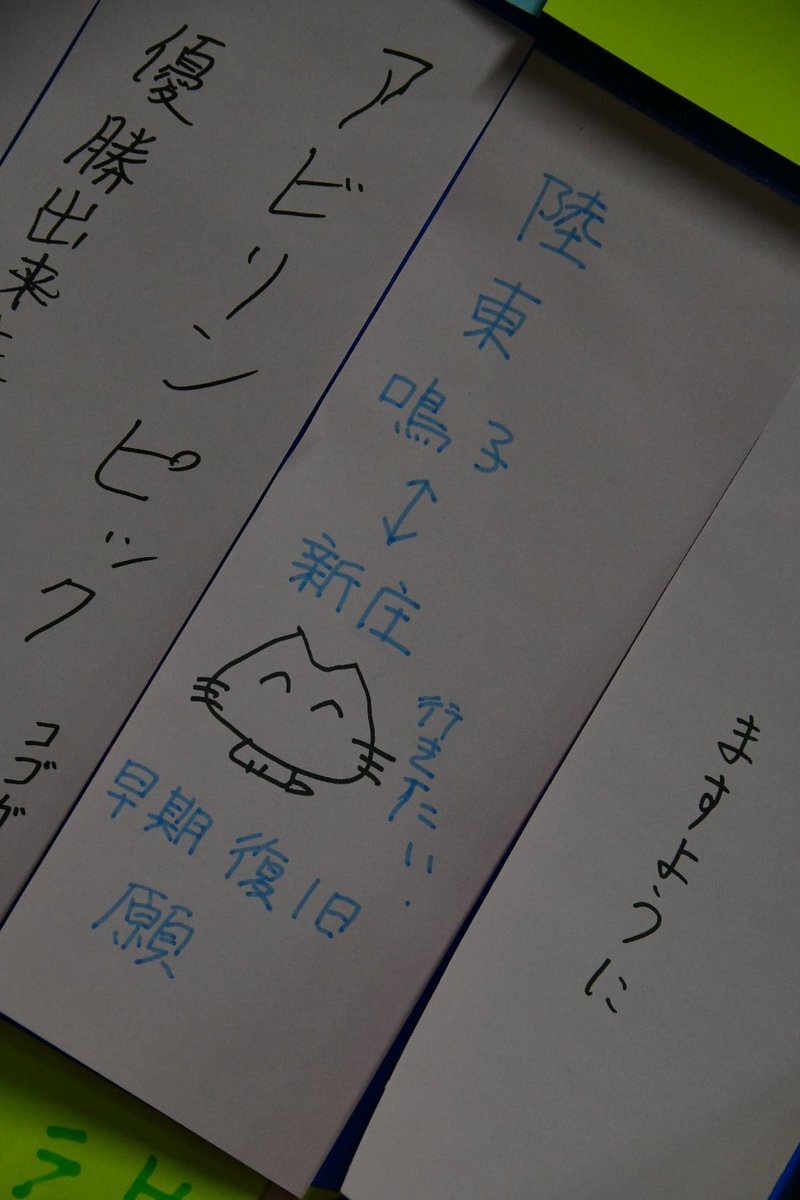 ますように
陸東
鳴子
↕
新庄
行きたい.
早期復旧
願
アビリンピック
優勝出来